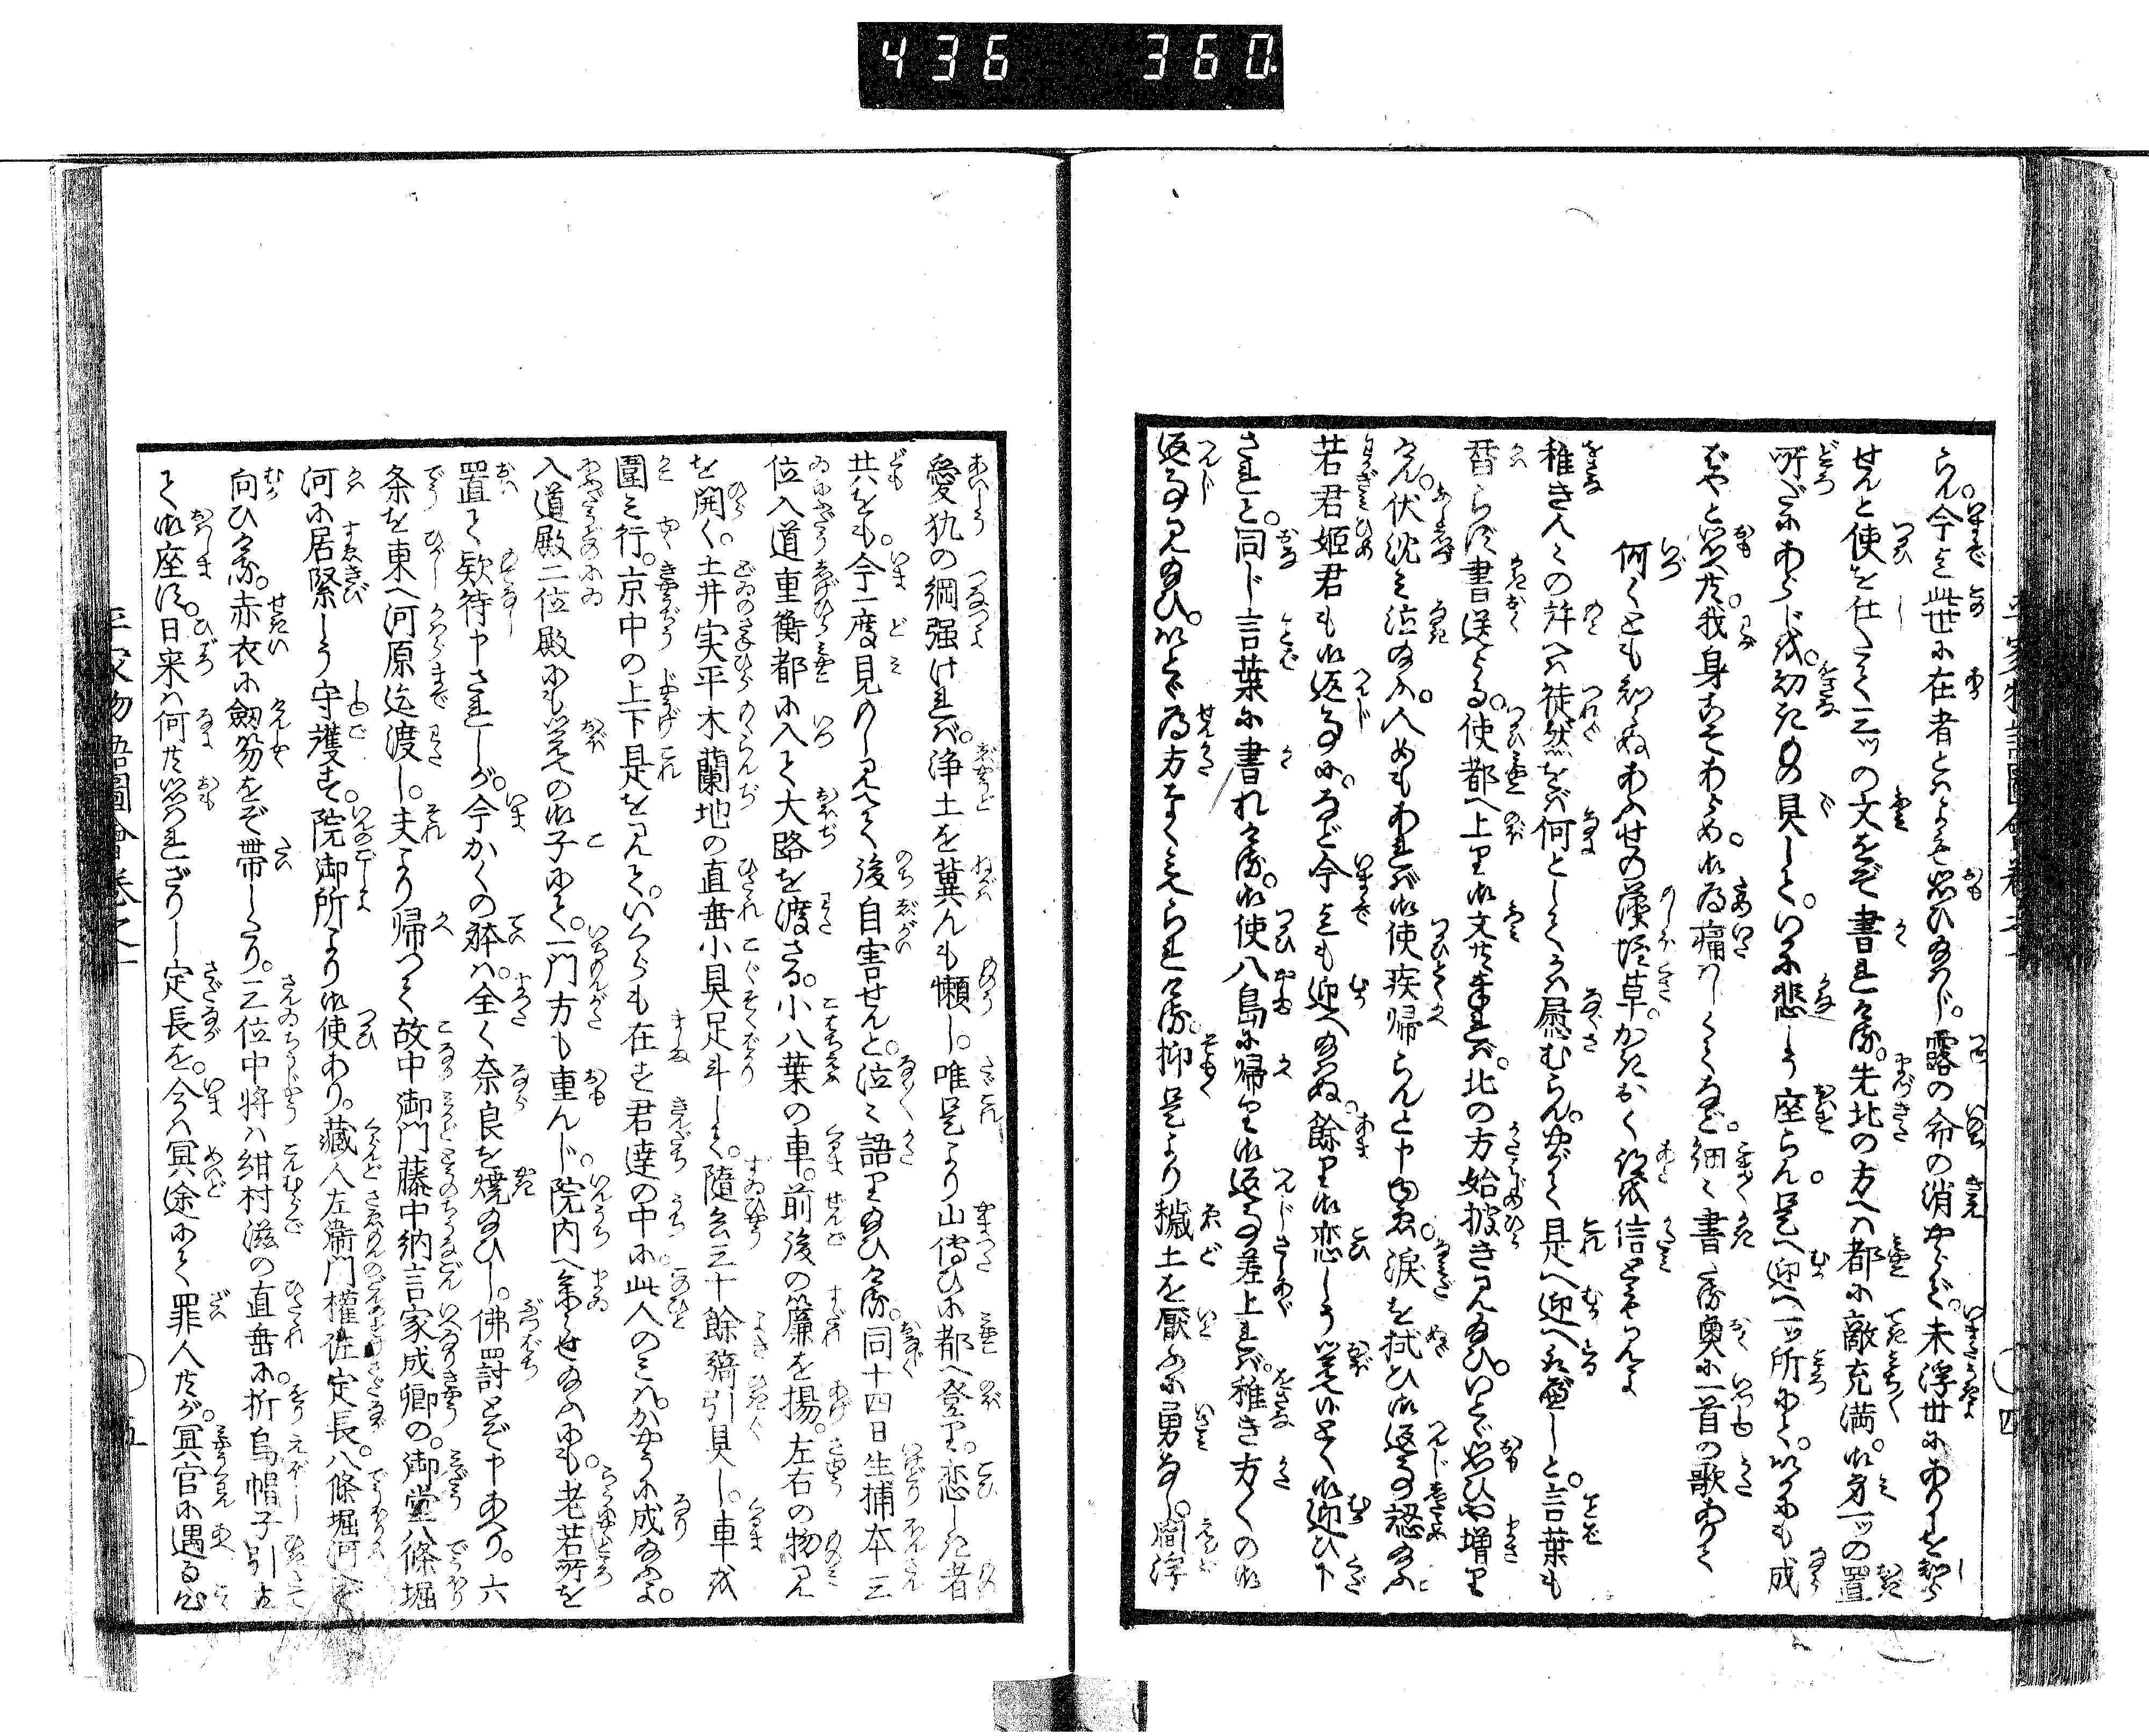 436 360
らん。今まで此世に在者とはよも思ひ給はじ。露の命の消やらで。未浮世にありしを知ら
せんと使を仕たてく三ツの文をぞ書れける。先北の方へは都に敵充満。御身一ツの置
所だにあらじを。幼きもの具して。いかに悲しう座らん。是へ迎へ一ツ所にて。いかにも成
ばやと思へ共。我身こそあらめ。御為痛はしくてなど。細々書。奥に一首の歌ありて
何くとも知らぬあふせの藻塩草。かきおく跡を信とやみよ
稚き人々の許へは徒然をば何としてかは慰むらん。やがて是へ迎へ取べしと。言葉も
替らず書送らる。使都へ上り御文共奉れば。北の方始披き見給ひ。いとゞ思ひや増り
けん。伏沈み泣給ふ。人めもあれば御使疾帰らんと申ゆゑ。涙を拭ひ御返事認給ふ。
若君姫君も御返事に。など今までも迎へ給はぬ。餘り御恋しう覚候とく御迎ひ下
されと。同じ言葉に書れける。御使八島に帰り御返事差上れば。稚き方々の御
返事見給ひ。いとゞ為方なくみえられける。抑是より穢土を厭ふに勇なし。閻浮
愛執の綱強ければ。浄土を冀んも懶し。唯是より山傳ひに都へ登り。恋しき者
共をも。今一度見もし見へて後自害せんと。泣々語り給ひける。同十四日生捕本三
位入道重衡都に入て大路を渡さる。小八葉の車。前後の簾を揚。左右の物見
を開く。土井実平木蘭地の直垂小具足斗して。隨兵三十餘騎引具し。車を
圍み行。京中の上下是を見て。いくらも在す君達の中に。此人のみは。かやうに成給ふよ。
入道殿二位殿にも覚への御子にて。一門方も重んじ。院内へ参らせ給ふにも。老若所を
置て欵待申されしが。今かくの躰は。全く奈良を焼給ひし。佛罰とぞ申あへり。六
条を東へ河原迄渡し。夫より帰つて故中御門藤中納言家成卿の。御堂八條堀
河に居緊しう守護す。院御所より御使あり。蔵人左衞門權佐定長。八條堀河へぞ
向ひける。赤衣に劔笏をぞ帯したり。三位中将は紺村滋の直垂に。折烏帽子引立
て御座す。日来は何共思はれざりし定長を。今は冥途にて罪人共が。冥官に遇る心
平家物語圖會巷之二
四
平家物語圖會巻之二
五